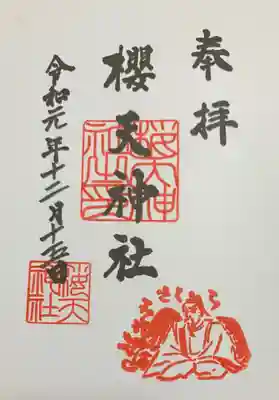 奉拝
櫻天神社
令和元年十二月十五日
櫻天神社之印
櫻天神社
さくら